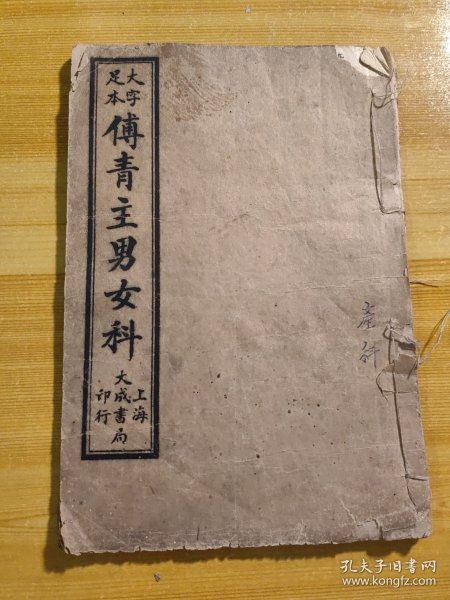 大字
足本
傅青主男女科
上海
大成書局
印行
產科
孔夫子旧书网
www.kongfz.com